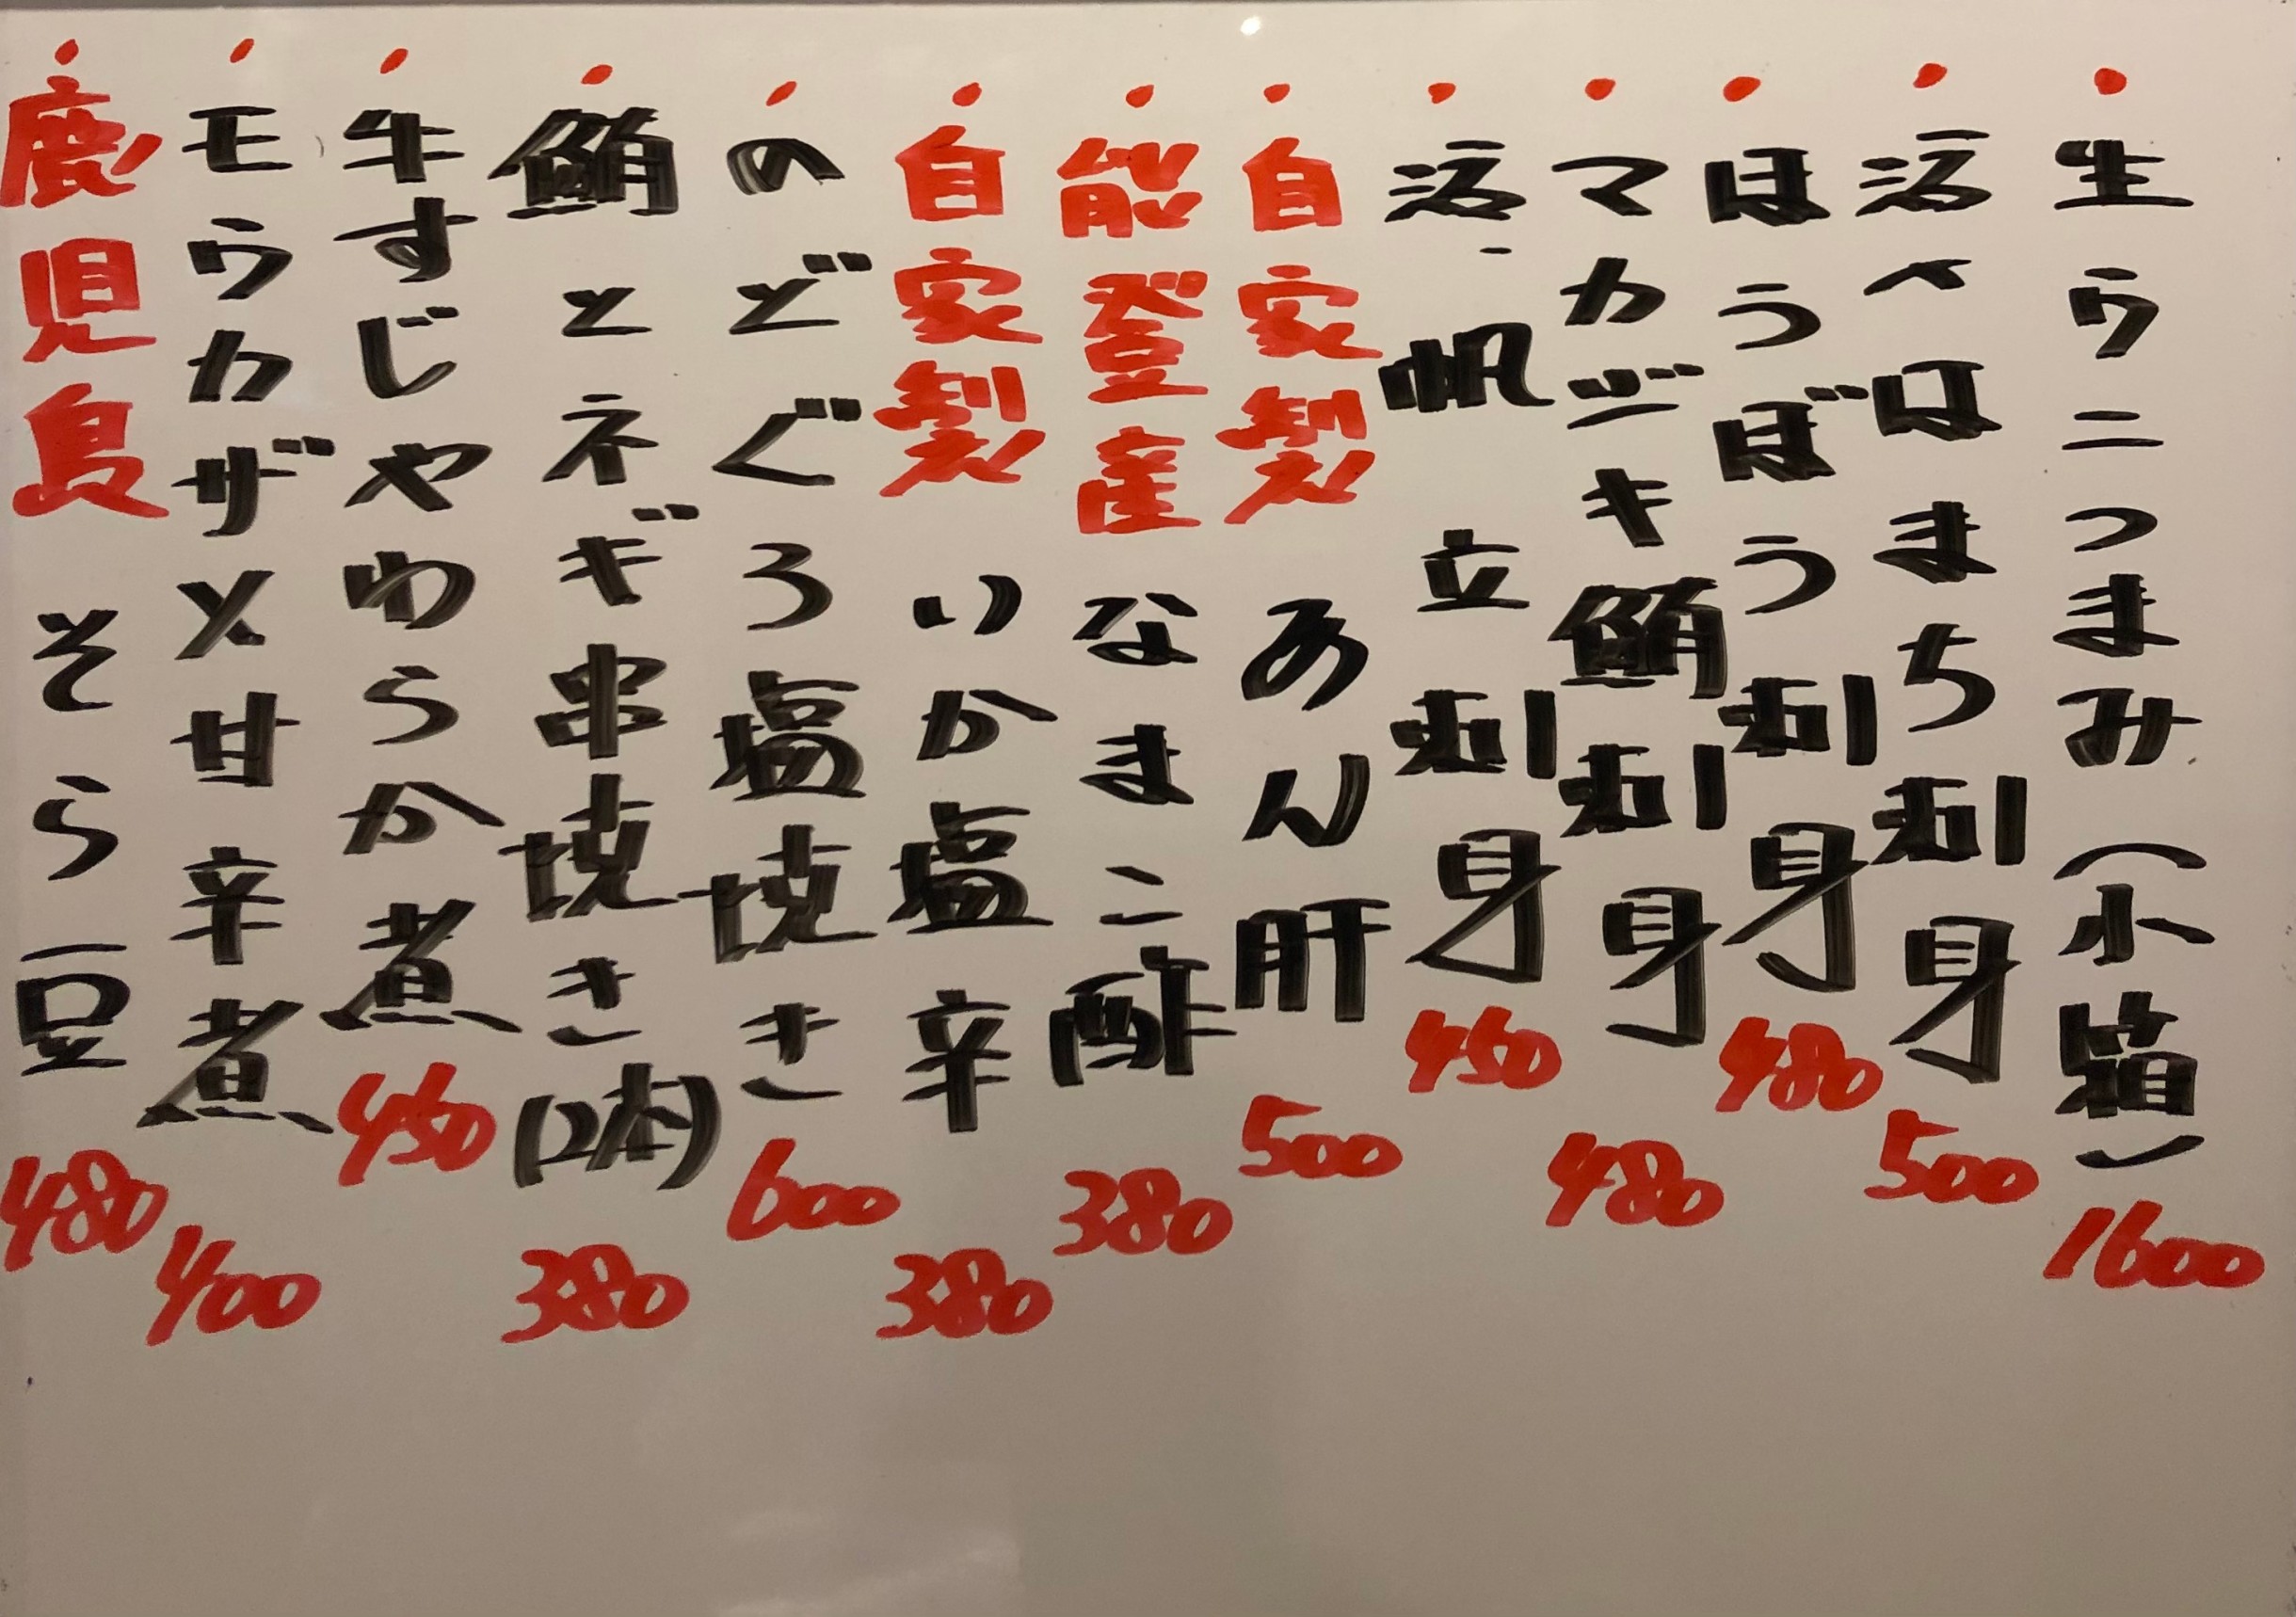 ・生ウニつまみ(小箱)1600
・活〆はまち刺身500
・ほうぼう刺身480
・マカヂキ鮪刺身480
・活帆立刺身450
・自家製あん肝500
・能登産なまこ酢380
・自家製いか塩辛380
・のどぐろ塩焼き600
・鮪とネギ串焼き(2本)380
・牛すじやわらか煮450
・モウカザメ甘辛煮400
・鹿児島そら豆480